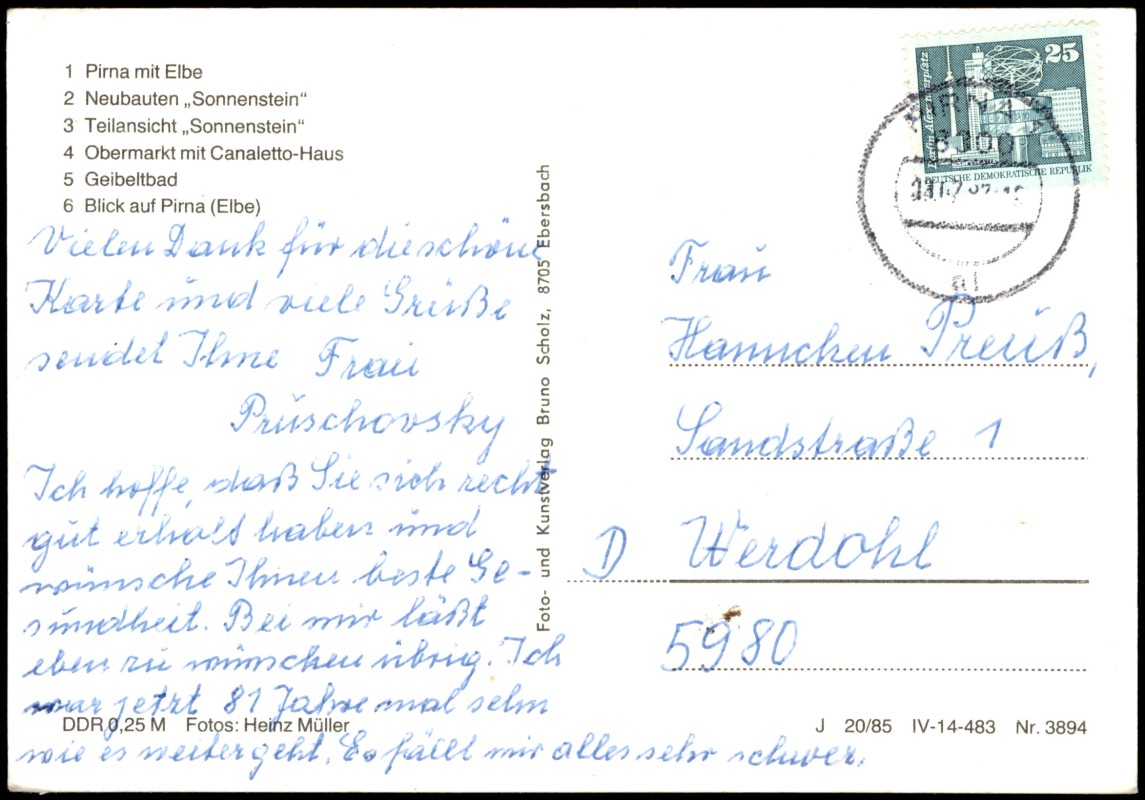 1 Pirna mit Elbe
2 Neubauten „Sonnenstein“
3 Teilansicht „Sonnenstein“
4 Obermarkt mit Canaletto-Haus
5 Geibeltbad
6 Blick auf Pirna (Elbe)
Vielen Dank für die schöne
Karte und viele Grüße
sendet Ihne Frau
Prüschovsky
Ich hoffe, daß Sie sich recht
gut erholt haben und
wünsche Ihnen beste Ge-
sundheit. Bei mir läßt
eben zu wünschen übrig. Ich
war jetzt 81 Jahre mal sehn
wie es weitergeht. Es fällt mir alles sehr schwer.
DDR 0,25 M Fotos: Heinz Müller
Foto- und Kunstverlag Bruno Scholz, 8705 Ebersbach
25
Berlin Alexanderplatz
DEUTSCHE DEMOKRATISCHE REPUBLIK
PIRNA 1
8300
al
Frau
Hannchen Preuß,
Sandstraße 1
D Werdohl
5980
J 20/85 IV-14-483 Nr. 3894